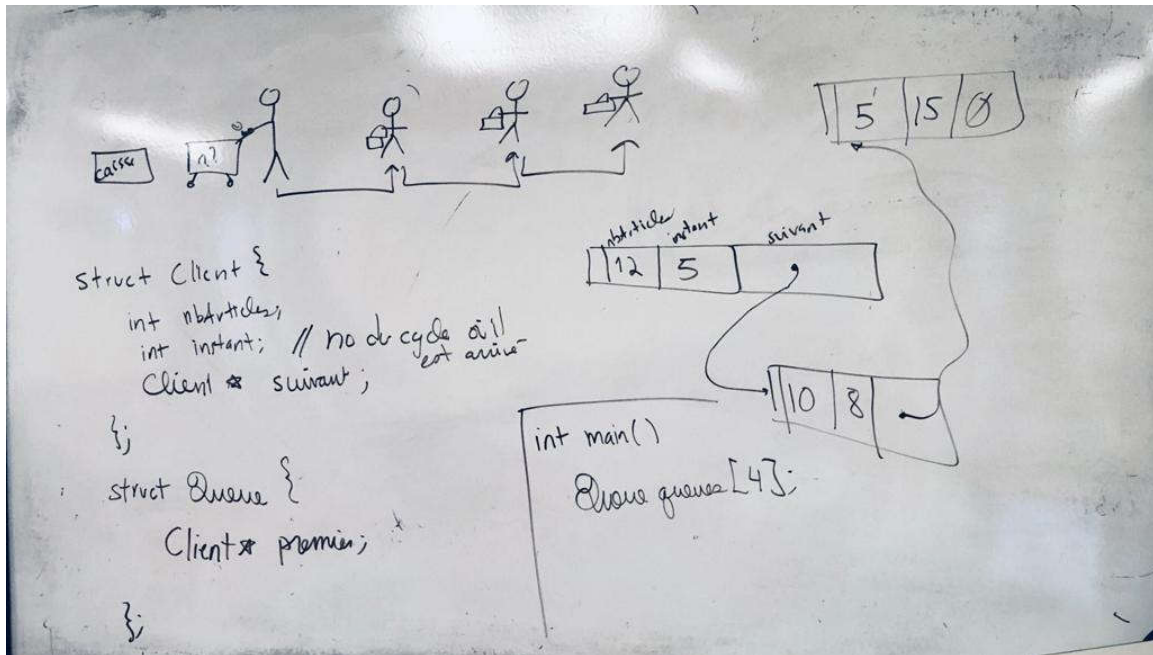 caisse
n?
5 15 Ø
nbArticles instant suivant
12 5
10 8
struct Client {
int nbArticles;
int instant; // no du cycle où il
est arrivé
Client * suivant;
};
struct Queue {
Client * premier;
};
int main()
Queue queues[4];